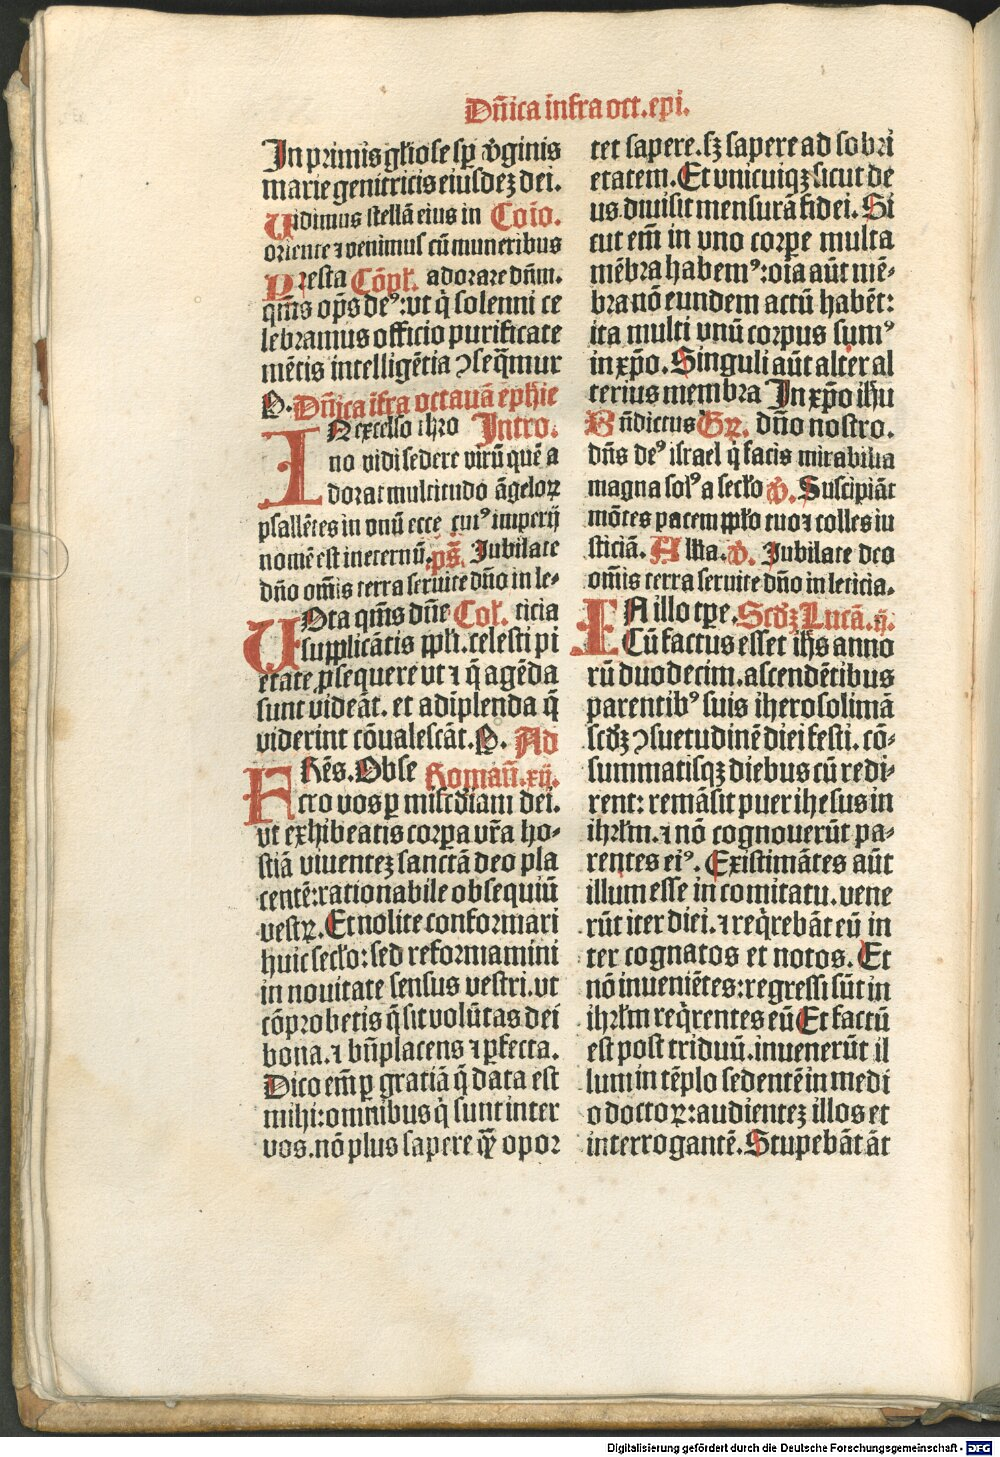 Dñica infra oct. epi.
In primis gl̃iose sp̱ ỽginis
marie genitricis eiusdeꝫ dei.
Uidimus stellã eius in Coĩo.
oriente ⁊ venimus cũ muneribus
Presta Cõpl̃. adorare dñm.
qm̃s op̃s deꝰ: vt q̃ solenni ce
lebramus officio purificate
mẽtis intelligẽtia ꝯseq̃mur
P. Dñica ĩfra octauã ephie
IN excelso thro Intro.
no vidi sedere virũ quẽ a
dorat multitudo ãgeloꝝ
psallẽtes in vnũ ecce cuiꝰ imperij
nomẽ est in eternũ. ps̃. Jubilate
dño om̃is terra seruite dño in le⸗
UOta qm̃s dñe Col̃. ticia
supplicãtis ppl̃i. celesti pi
etate ꝓsequere vt ⁊ q̃ agẽda
sunt videãt. et adĩplenda q̃
viderint cõualescãt. P. Ad
FRẽs. Obse Romañ. xij.
cro vos ꝑ mĩcdiam dei.
vt exhibeatis corpa vr̃a ho⸗
stiã viuenteꝫ sanctã deo pla
centẽ: rationabile obsequiũ
vestꝝ. Et nolite conformari
huic secl̃o: sed reformamini
in nouitate sensus vestri. vt
cõprobetis q̃ sit volũtas dei
bona. ⁊ bñplacens ⁊ ꝑfecta.
Dico em̃ ꝑ gratiã q̃ data est
mihi: omnibus q̃ sunt inter
vos. nõ plus sapere q̃ȝ opor
tet sapere. sꝫ sapere ad sobri
etatem. Et vnicuiqꝫ sicut de
us diuisit mensurã fidei. Si
cut em̃ in vno corpe multa
mẽbra habemꝰ: oĩa aũt mẽ⸗
bra nõ eundem actũ habẽt:
ita multi vnũ corpus sumꝰ
in xp̃o. Singuli aũt alter al
terius membra In xp̃o ihũ
Bñdictus Gr̃. dño nostro.
dñs deꝰ israel q̃ facis mirabilia
magna solꝰ a secl̃o ỽ. Suscipiãt
mõtes pacem ppl̃o tuo ⁊ colles iu
sticiã. Alľa. ỽ. Jubilate deo
om̃is terra seruite dño in leticia.
IN illo tp̱e. Scd̃ꝫ Lucã. ij.
Cũ factus esset ihs̃ anno
rũ duodecim. ascendẽtibus
parentibꝰ suis iherosolimã
scd̃ꝫ ꝯsuetudinẽ diei festi. cõ⸗
summatisqꝫ diebus cũ redi⸗
rent: remãsit puer ihesus in
ihrl̃m. ⁊ nõ cognouerũt pa⸗
rentes eiꝰ. Existimãtes aũt
illum esse in comitatu. vene
rũt iter diei. ⁊ req̃rebãt eũ in
ter cognatos et notos. Et
nõ inueniẽtes: regressi sũt in
ihrl̃m req̃rentes eũ Et factũ
est post triduũ. inuenerũt il
lum in tẽplo sedentẽ in medi
o doctoꝝ: audienteꝫ illos et
interrogantẽ. Stupebãt ãt
Digitalisierung gefördert durch die Deutsche Forschungsgemeinschaft - DFG